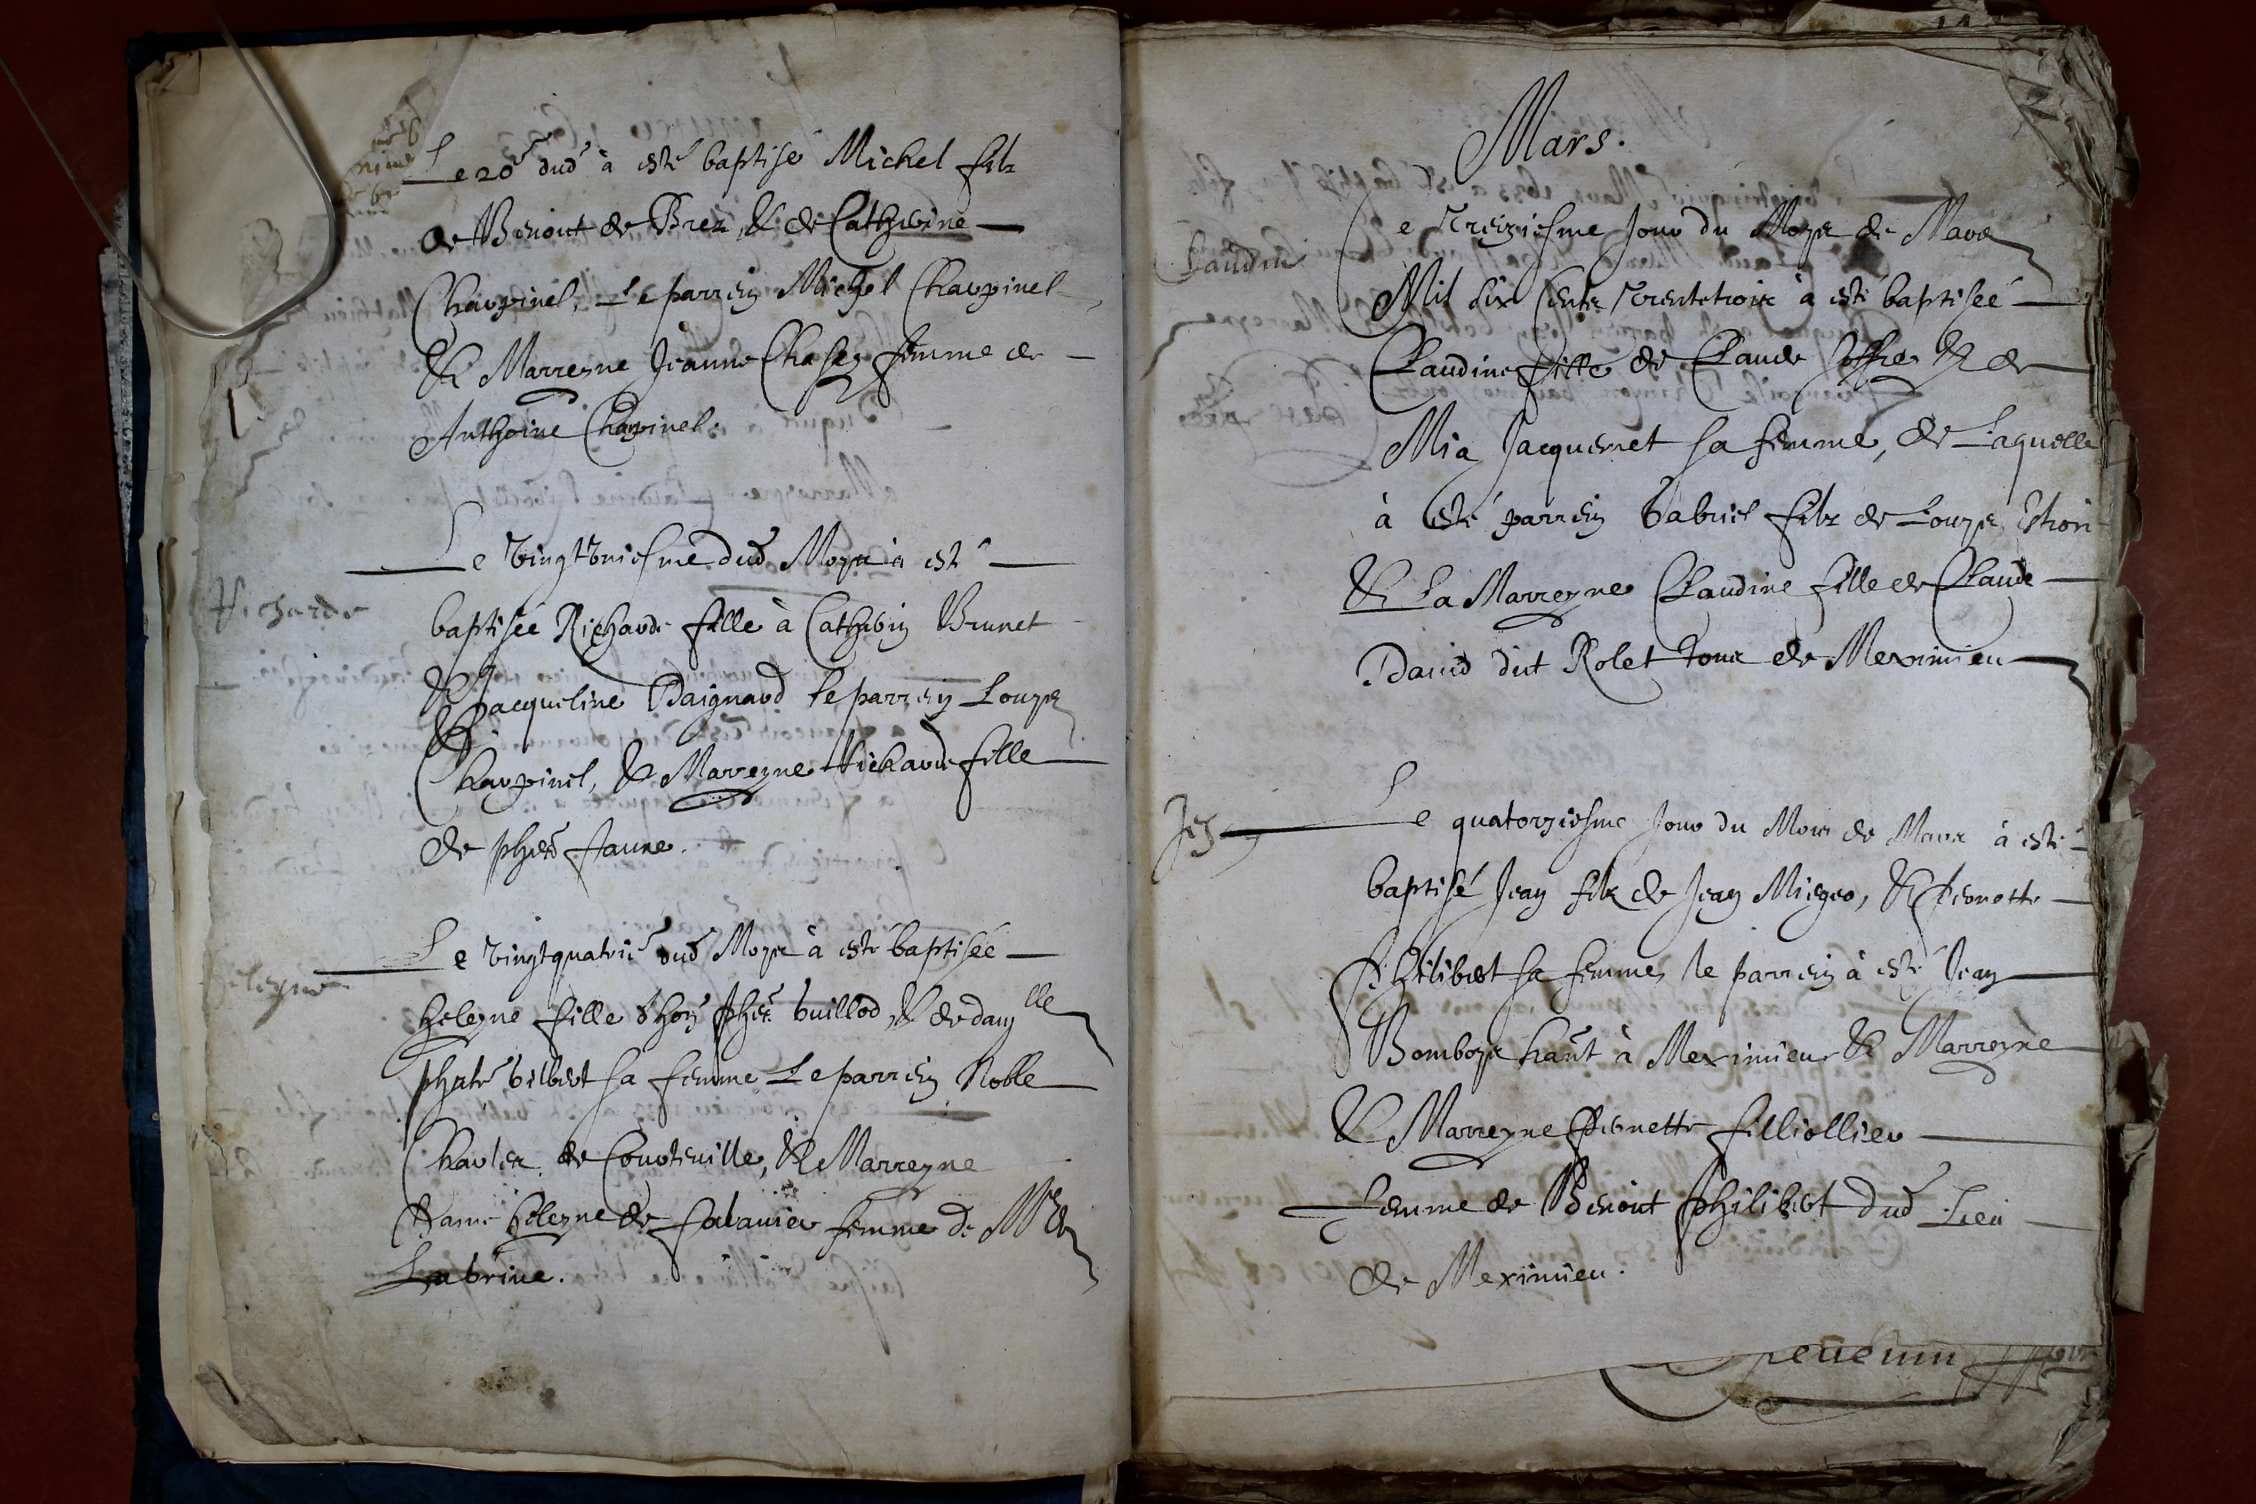 Le 20e dud à esté baptisé Michel filz
de Benoit de Brez & de Catherine
Charpinel, Le parrein Michel Charpinel
& Marreyne Jeanne femme de
Anthoine Charpinel.
Richarde
Le vingtuniesme dud Moys à esté
baptisée Richarde fille à Catherin Brunet
& Jacqueline Daignard Le parrein Louys
Charpinel, & Marreyne Richarde fille
de Faure.
heleyne
Le vingtquatrie dud Moys à esté baptisée
heleyne fille d'hon guillod & de dam lle
gilbert sa femme Le parrein Noble
Charles de Courteville, & Marreyne
Dame heleyne de femme de Mr de
Labrive.
Mars.
Claudine
Le Treiziesme Jour du Moys de Mars
Mil six Cents Trentetrois à esté baptisée
Claudine fille de Claude Joffre & de
Mia Jacquemet sa femme, de Laquelle
à esté parrein Gabriel filz de Louys
& La Marreyne Claudine fille de Claude
David dit Rolet tous de Meximieu
Jean
Le quatorziesme Jour du Mois de Mars à esté
baptisé Jean filz de Jean & Pernette
Philibert sa femme, le parrein à esté Jean
Bomboys haut à Meximieu & Marreyne
& Marreyne Pernette filliollier
femme de Benoit Philibert dud Lieu
de Meximieu.